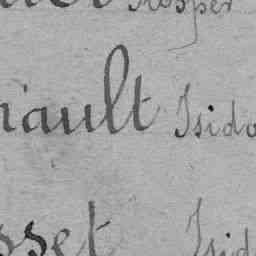 rosper
ault Isido
sset Isid